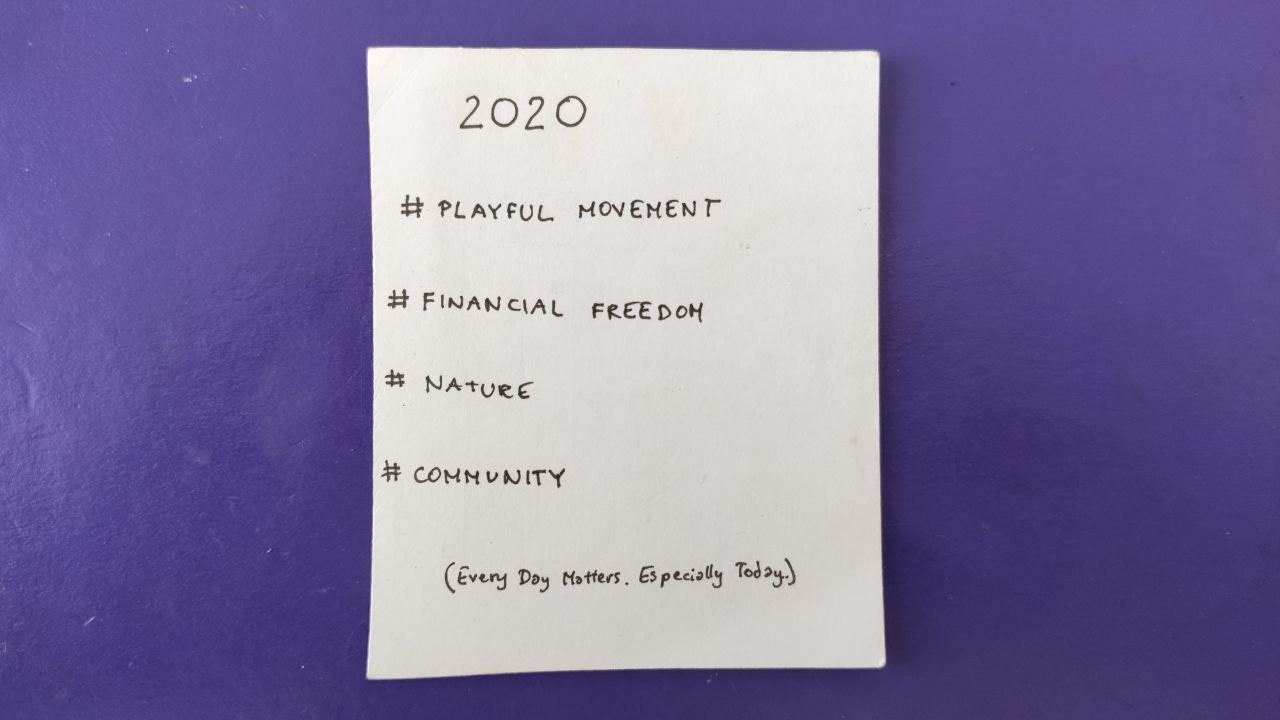 2020
# PLAYFUL MOVEMENT
# FINANCIAL FREEDOM
# NATURE
# COMMUNITY
(Every Day Matters. Especially Today.)